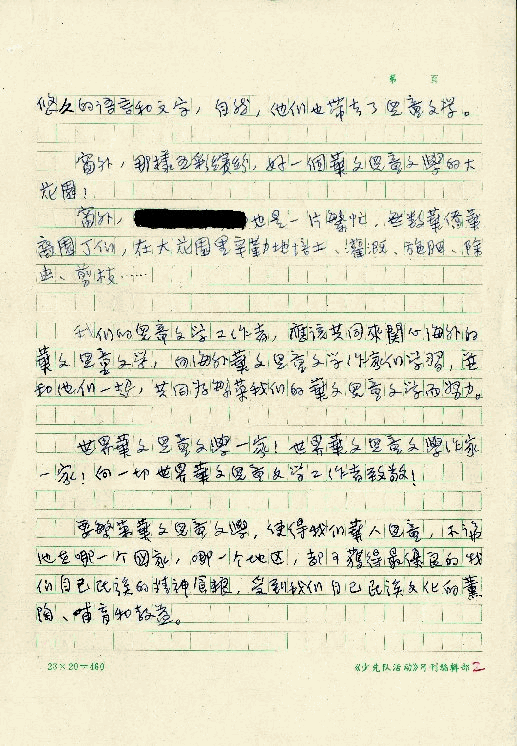 第　页
悠久的语言和文字，自然，他们也带去了児童文学。
窗外，那樣五彩缤纷，好一個華文児童文學的大
花園！
窗外，也是一片繁忙，無数華僑華
裔園丁们，在大花園里辛勤地培土、灌溉、施肥、除
虫、剪枝……
我们的児童文学工作者，應该共同來関心海外的
華文児童文学，向海外華文児童文学作家们学習，并
和他们一起，共同为繁荣我们的華文児童文学而努力。
世界華文児童文學一家！世界華文児童文學作家
一家！向一切世界華文児童文学工作者致敬！
要繁荣華文児童文學，使得我们華人児童，不論
他在哪一个國家，哪一个地区，都可獲得最優良的我
们自己民族的精神食糧，受到我们自己民族文化的薰
陶、哺育和教益。
23×20=460
《少先队活动》月刊编辑部 2